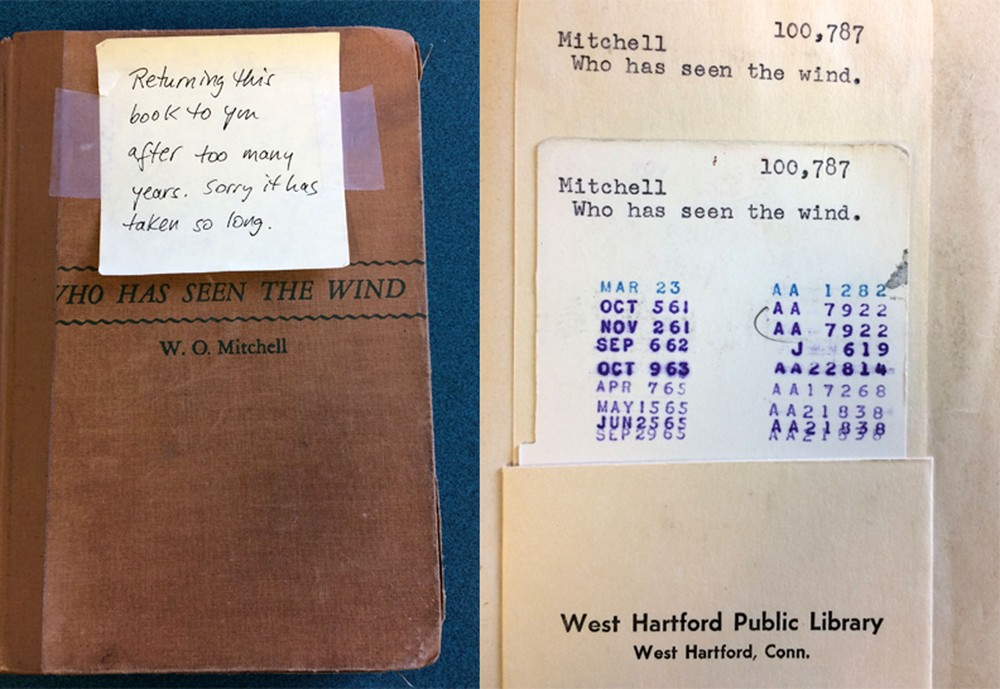 Returning this
book to you
after too many
years. Sorry it has
taken so long.
WHO HAS SEEN THE WIND
W. O. Mitchell
100,787
Mitchell
Who has seen the wind.
100,787
Mitchell
Who has seen the wind.
MAR 23 AA 1282
OCT 561 AA 7922
NOV 261 AA 7922
SEP 662 J 619
OCT 963 AA22814
APR 765 AA17268
MAY1565 AA21838
JUN2565 AA21838
SEP2965 AA21838
West Hartford Public Library
West Hartford, Conn.